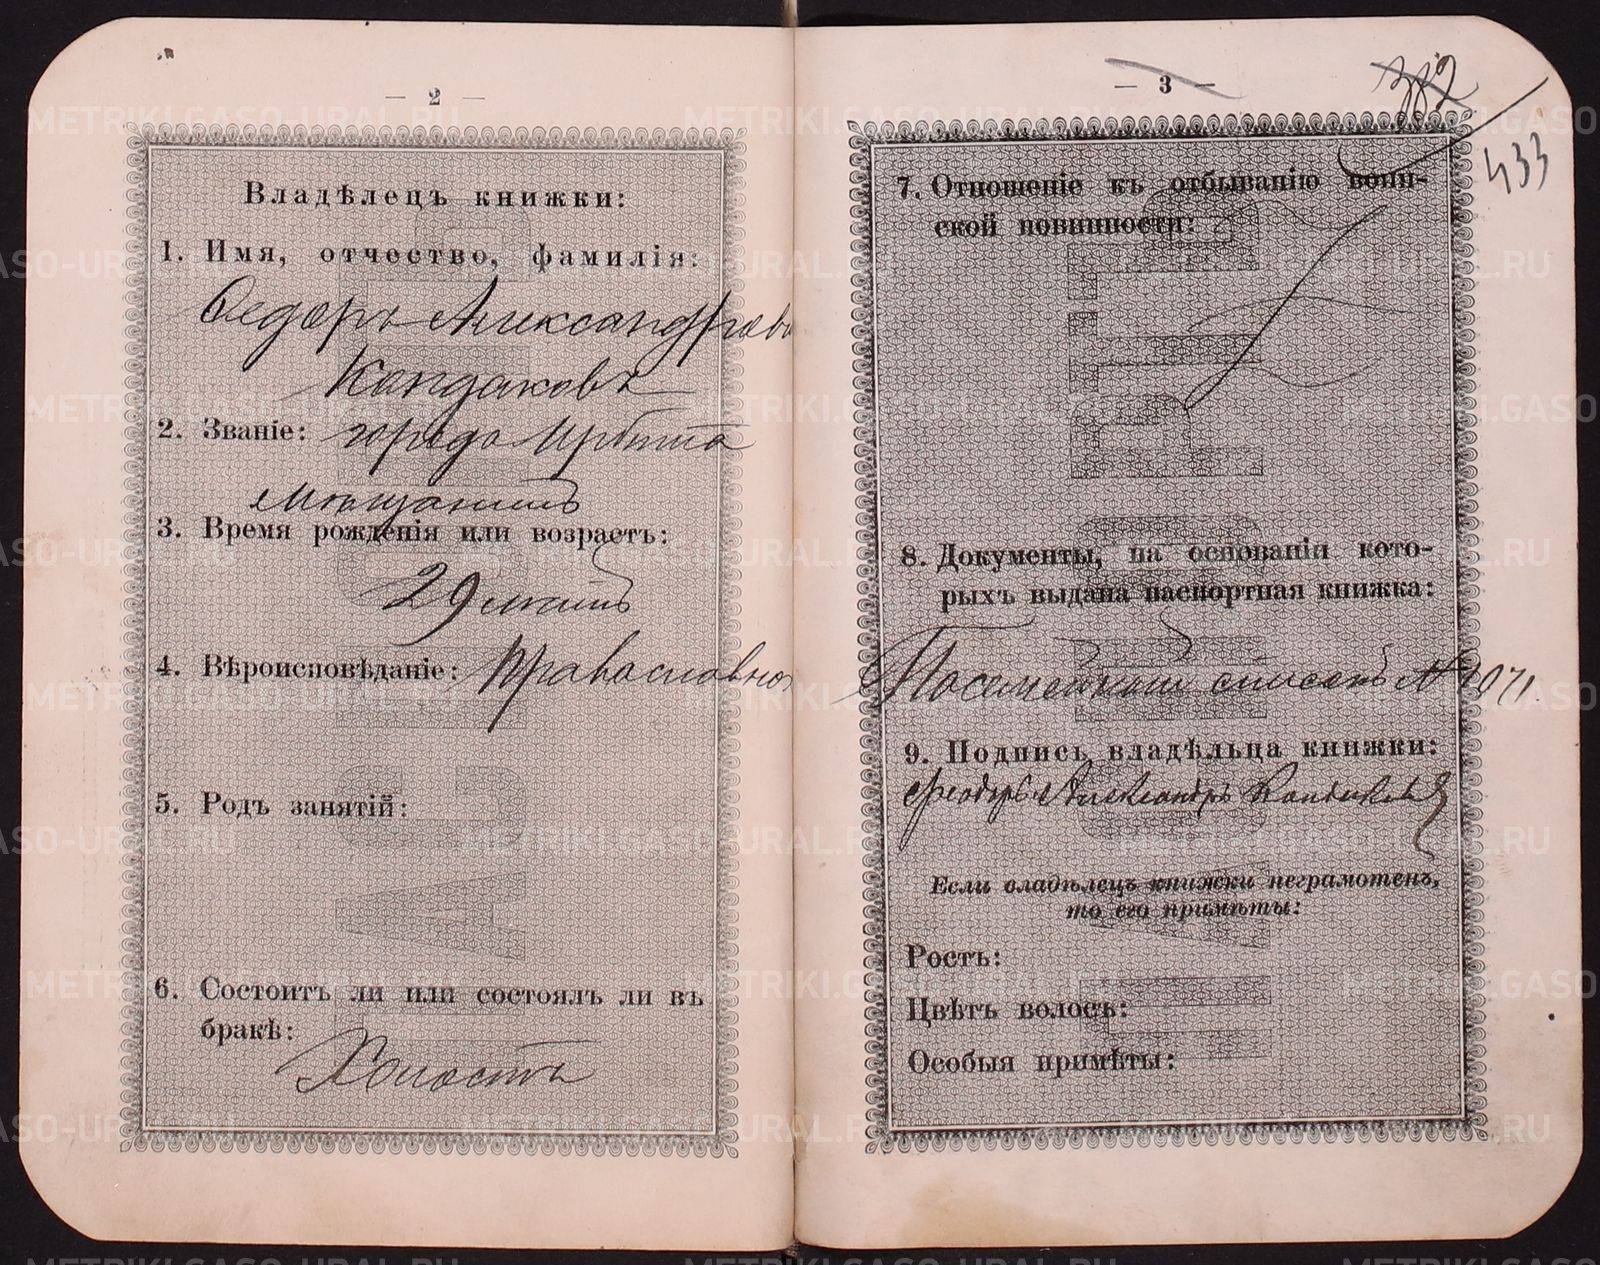 — 2 —
Владѣлецъ книжки:
1. Имя, отчество, фамилія:
Ѳедоръ Александровъ
Кандаковъ
2. Званіе: города Ирбита
мѣщанинъ
3. Время рожденія или возрастъ:
29 лѣтъ
4. Вѣроисповѣданіе: Православно
5. Родъ занятій:
6. Состоитъ ли или состоялъ ли въ
бракѣ:
Холостъ
— 3 —
382
433
7. Отношеніе къ отбыванію воин-
ской повинности:
8. Документы, на основаніи кото-
рыхъ выдана паспортная книжка:
Посемейный списокъ № 1071
9. Подпись владѣльца книжки:
Феодоръ Александръ Кандаковъ
Если владѣлецъ книжки неграмотенъ,
то его примѣты:
Ростъ:
Цвѣтъ волосъ:
Особыя примѣты:
METRIKI.GASO-URAL.RU